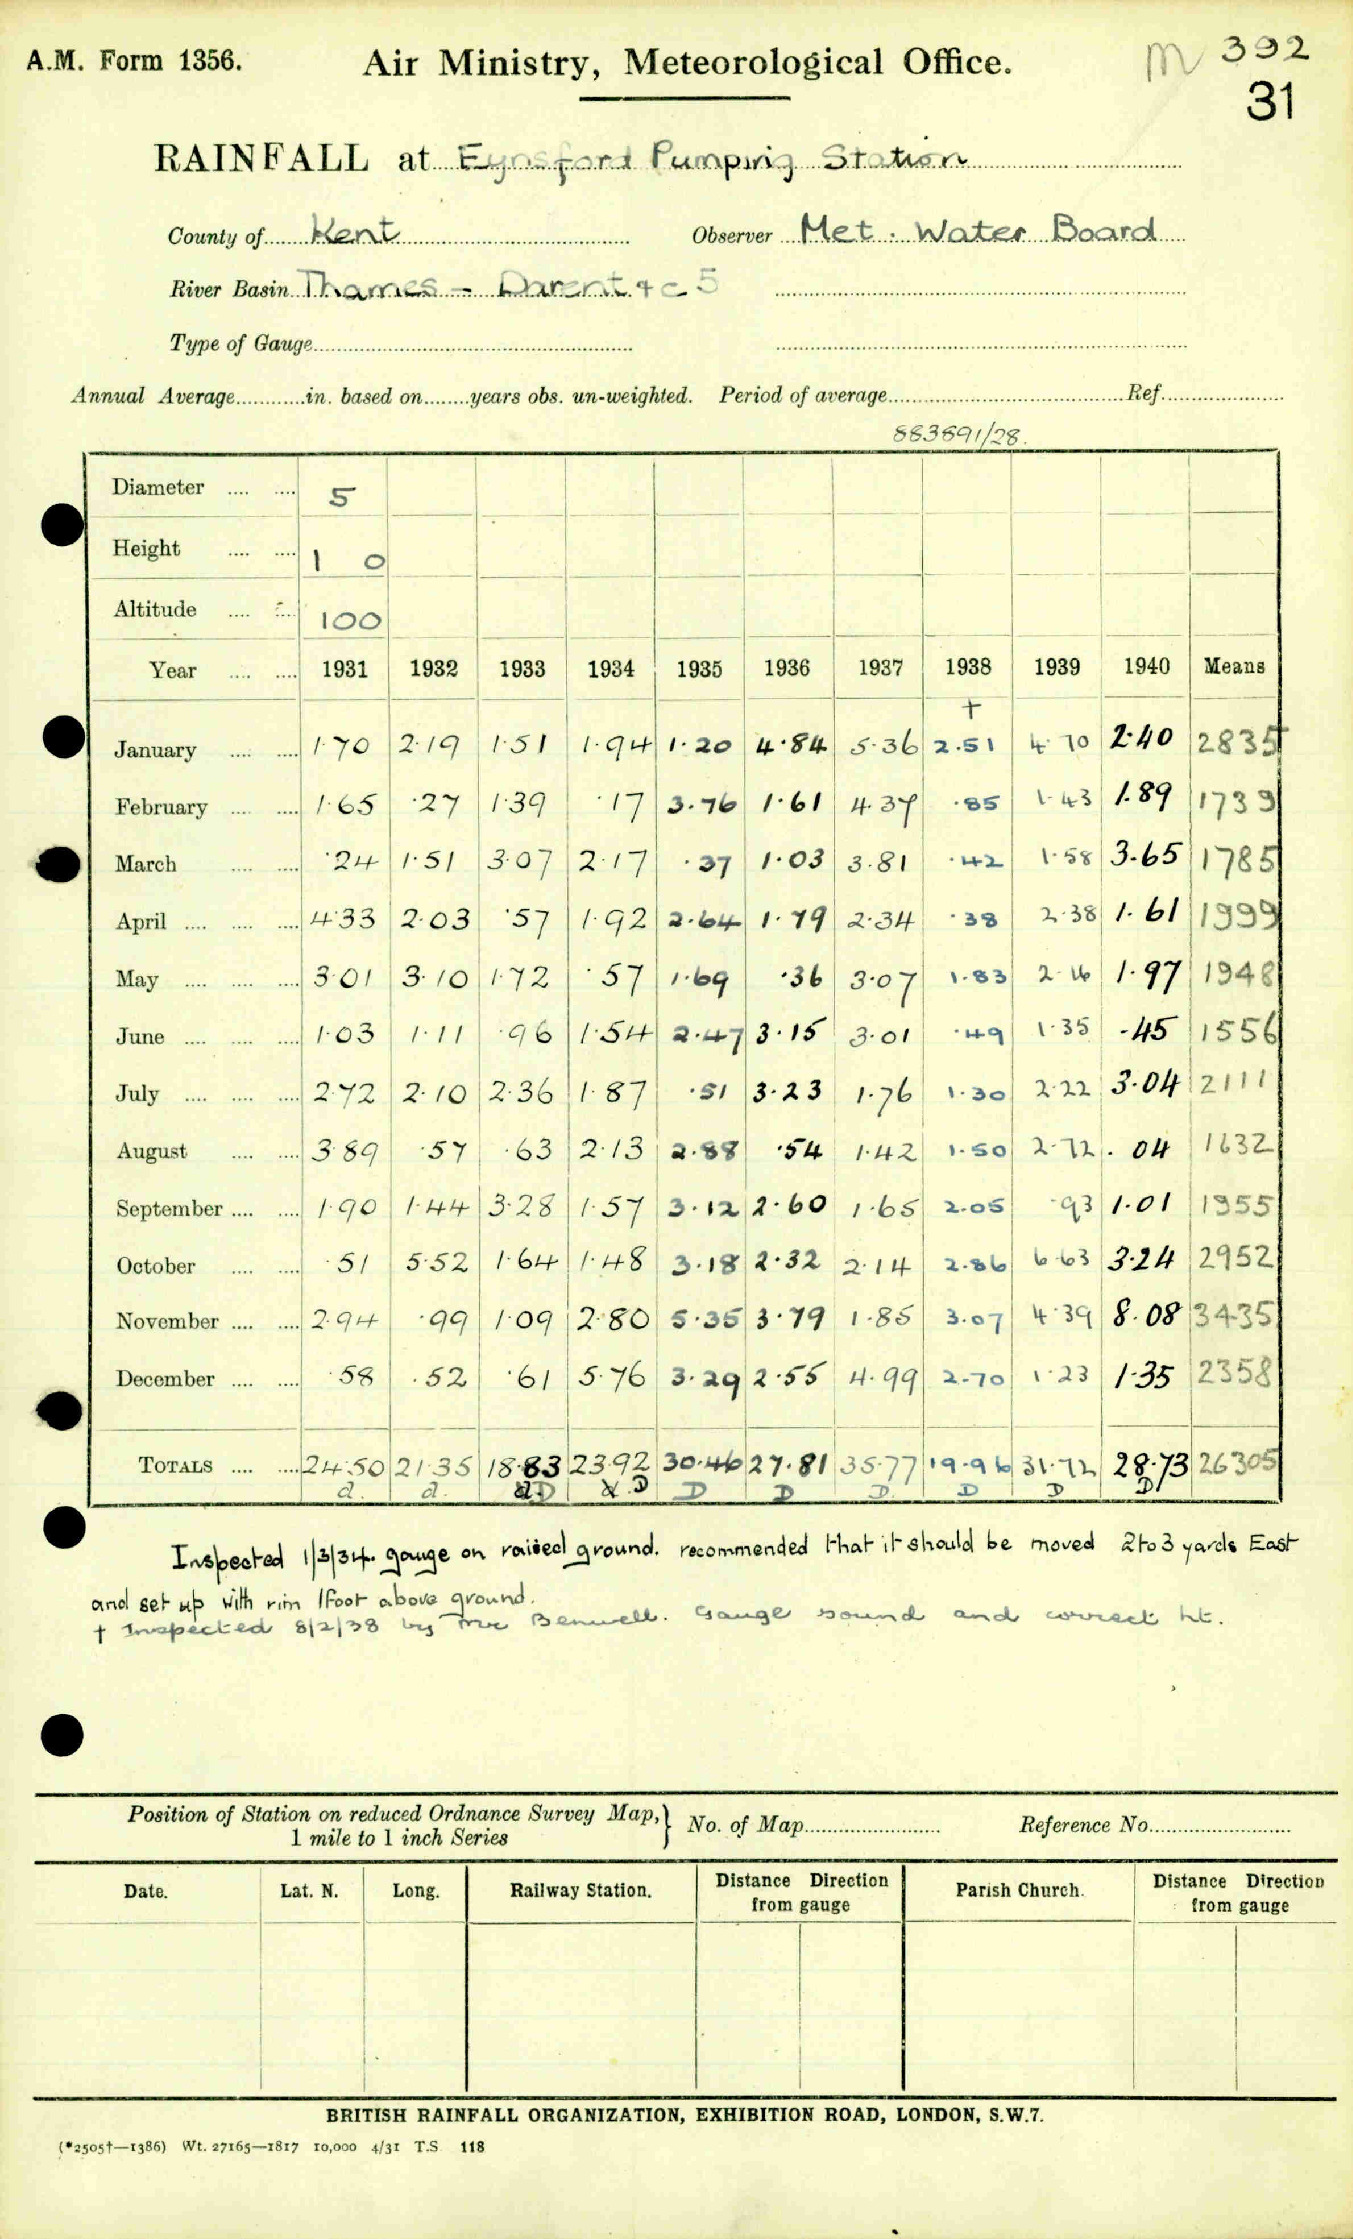 A.M. Form 1356. Air Ministry, Meteorological Office. M 392
31
RAINFALL at Eynsford Pumping Station
County of Kent Observer Met. Water Board
River Basin Thames - Darent & c 5
Type of Gauge
Annual Average in. based on years obs. un-weighted. Period of average Ref.
883891/28.
Diameter 5
Height 1 0
Altitude 100
Year 1931 1932 1933 1934 1935 1936 1937 1938 1939 1940 Means
†
January 1.70 2.19 1.51 1.94 1.20 4.84 5.36 2.51 4.70 2.40 2835
February 1.65 .27 1.39 .17 3.76 1.61 4.37 .85 1.43 1.89 1739
March .24 1.51 3.07 2.17 .37 1.03 3.81 .42 1.58 3.65 1785
April 4.33 2.03 .57 1.92 2.64 1.79 2.34 .38 2.38 1.61 1999
May 3.01 3.10 1.72 .57 1.69 .36 3.07 1.83 2.16 1.97 1948
June 1.03 1.11 .96 1.54 2.47 3.15 3.01 .49 1.35 .45 1556
July 2.72 2.10 2.36 1.87 .51 3.23 1.76 1.30 2.22 3.04 2111
August 3.89 .57 .63 2.13 2.88 .54 1.42 1.50 2.72 .04 1632
September 1.90 1.44 3.28 1.57 3.12 2.60 1.65 2.05 .93 1.01 1955
October .51 5.52 1.64 1.48 3.18 2.32 2.14 2.86 6.63 3.24 2952
November 2.94 .99 1.09 2.80 5.35 3.79 1.85 3.07 4.39 8.08 3435
December .58 .52 .61 5.76 3.29 2.55 4.99 2.70 1.23 1.35 2358
TOTALS 24.50 21.35 18.83 23.92 30.46 27.81 35.77 19.96 31.72 28.73 26305
d. d. d. D D D D D. D D D
Inspected 1/3/34. gauge on raised ground. recommended that it should be moved 2 to 3 yards East
and set up with rim 1 foot above ground.
† Inspected 8/2/38 by Mr Benwell. Gauge sound and correct ht.
Position of Station on reduced Ordnance Survey Map, } No. of Map Reference No.
1 mile to 1 inch Series
Date. Lat. N. Long. Railway Station. Distance Direction from gauge Parish Church. Distance Direction from gauge
BRITISH RAINFALL ORGANIZATION, EXHIBITION ROAD, LONDON, S.W.7.
(*2505†—1386) Wt. 27165—1817 10,000 4/31 T.S. 118